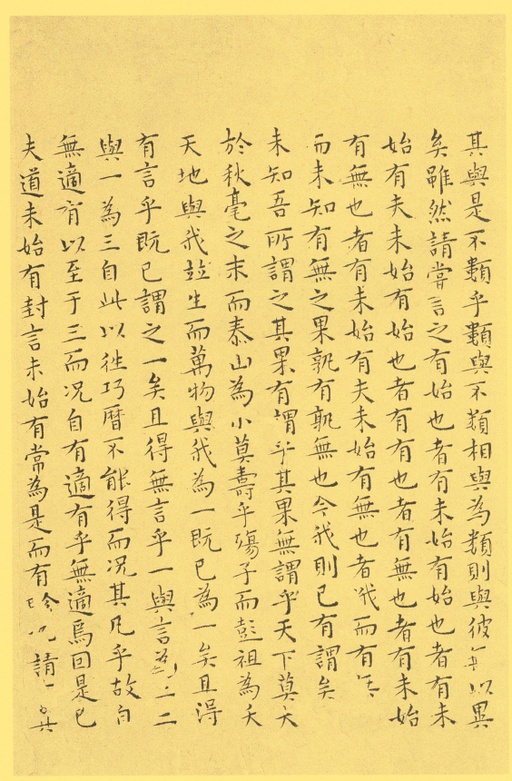 其與是不類乎類與不類相與為類則與彼無以異
矣雖然請嘗言之有始也者有未始有始也者有未
始有夫未始有始也者有有也者有無也者有未始
有無也者有未始有夫未始有無也者俄而有無
而未知有無之果孰有孰無也今我則已有謂矣
未知吾所謂之其果有謂乎其果無謂乎天下莫大
於秋毫之末而泰山為小莫壽乎殤子而彭祖為夭
天地與我並生而萬物與我為一既已為一矣且得
有言乎既已謂之一矣且得無言乎一與言為二二
與一為三自此以往巧曆不能得而況其凡乎故自
無適有以至于三而況自有適有乎無適焉因是已
夫道未始有封言未始有常為是而有畛也請言其